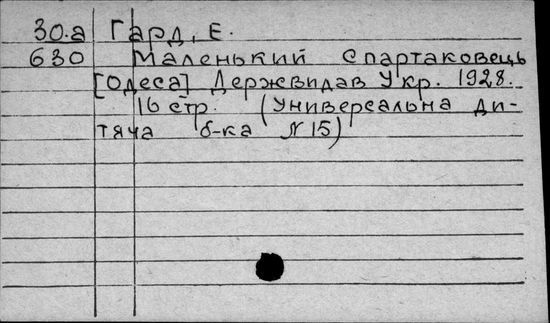 30.а Гард, Е.
630 Маленький спартаковець
[Одеса] Держвидав Укр. 1928.
16 стр. (Универсальна ди-
тяча б-ка N 15)